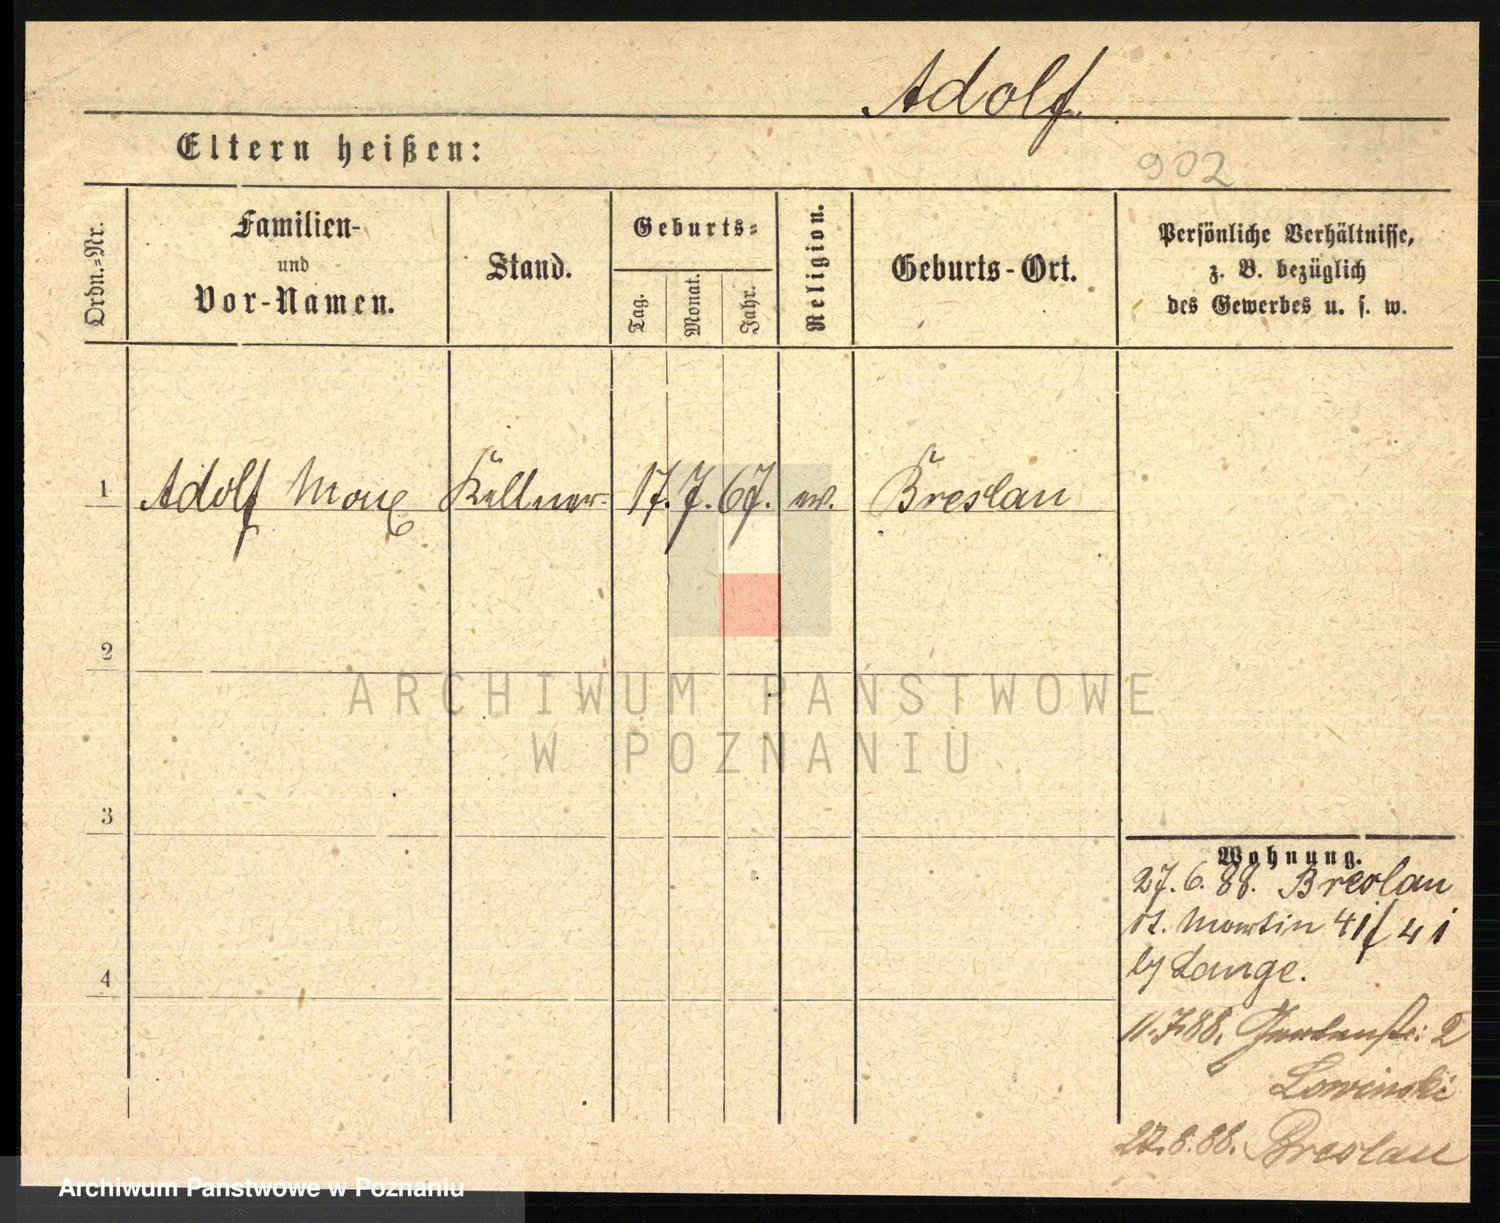 Adolf.
Eltern heißen:
902
Ordn.-Nr.
Familien-
und
Vor-Namen.
Stand.
Geburts-
Tag.
Monat.
Jahr.
Religion.
Geburts-Ort.
Persönliche Verhältnisse,
z. B. bezüglich
des Gewerbes u. s. w.
1 Adolf Max Kellner 17. 7. 67. ev. Breslau
2
ARCHIWUM PAŃSTWOWE
W POZNANIU
3
Wohnung.
27. 6. 88. Breslau
St. Martin 41/41
4
by Lange.
11.7.88. Gartenstr: 2
Lowinski
27.8.88. Breslau
Archiwum Państwowe w Poznaniu